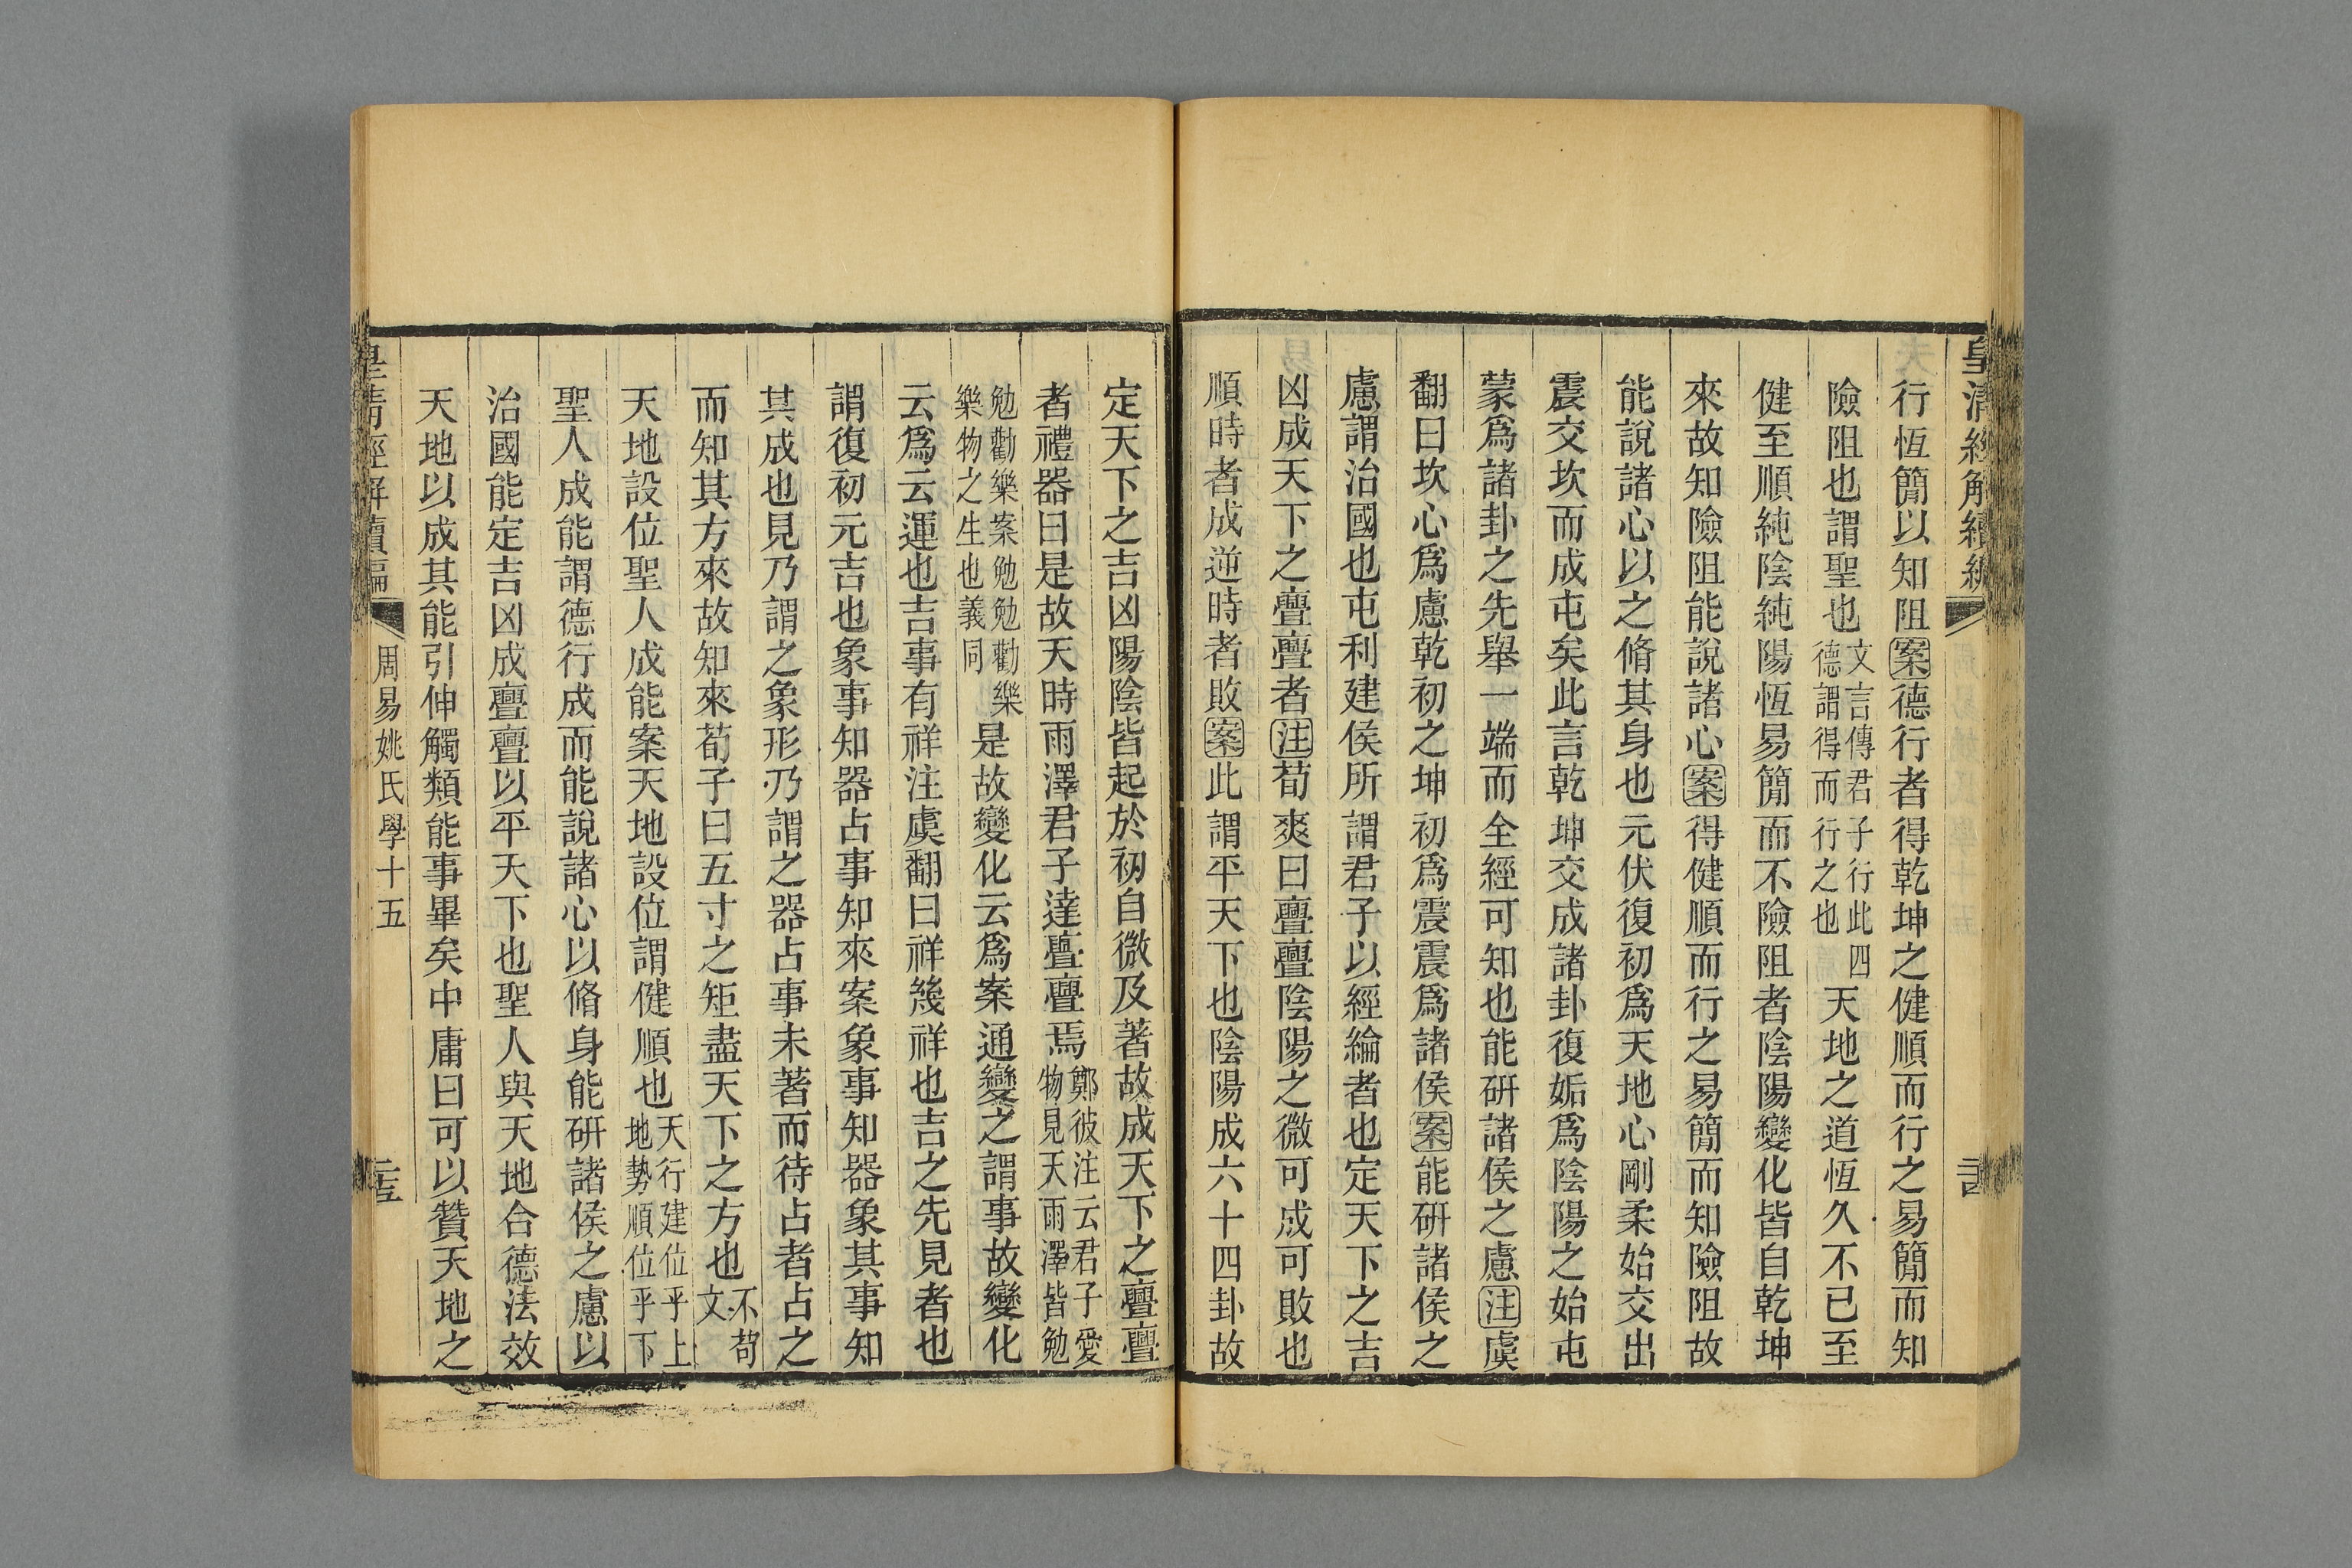 皇清經解續編
行恆簡以知阻案德行者得乾坤之健順而行之易簡而知
險阻也謂聖也文言傳君子行此四德謂得而行之也天地之道恆久不已至
健至順純陰純陽恆易簡而不險阻者陰陽變化皆自乾坤
來故知險阻能說諸心案得健順而行之易簡而知險阻故
能說諸心以之脩其身也元伏復初爲天地心剛柔始交出
震交坎而成屯矣此言乾坤交成諸卦復姤爲陰陽之始屯
蒙爲諸卦之先舉一端而全經可知也能硏諸侯之慮注虞
翻曰坎心爲慮乾初之坤初爲震震爲諸侯案能硏諸侯之
慮謂治國也屯利建侯所謂君子以經綸者也定天下之吉
凶成天下之亹亹者注荀爽曰亹亹陰陽之微可成可敗也
順時者成逆時者敗案此謂平天下也陰陽成六十四卦故
定天下之吉凶陽陰皆起於初自微及著故成天下之亹亹
者禮器曰是故天時雨澤君子達亹亹焉鄭彼注云君子愛物見天雨澤皆勉
勉勸樂案勉勉勸樂樂物之生也義同是故變化云爲案通變之謂事故變化
云爲云運也吉事有祥注虞翻曰祥幾祥也吉之先見者也
謂復初元吉也象事知器占事知來案象事知器象其事知
其成也見乃謂之象形乃謂之器占事未著而待占者占之
而知其方來故知來荀子曰五寸之矩盡天下之方也不苟文
天地設位聖人成能案天地設位謂健順也天行建位乎上地勢順位乎下
聖人成能謂德行成而能說諸心以脩身能硏諸侯之慮以
治國能定吉凶成亹亹以平天下也聖人與天地合德法效
天地以成其能引伸觸類能事畢矣中庸曰可以贊天地之
皇清經解續編 周易姚氏學十五